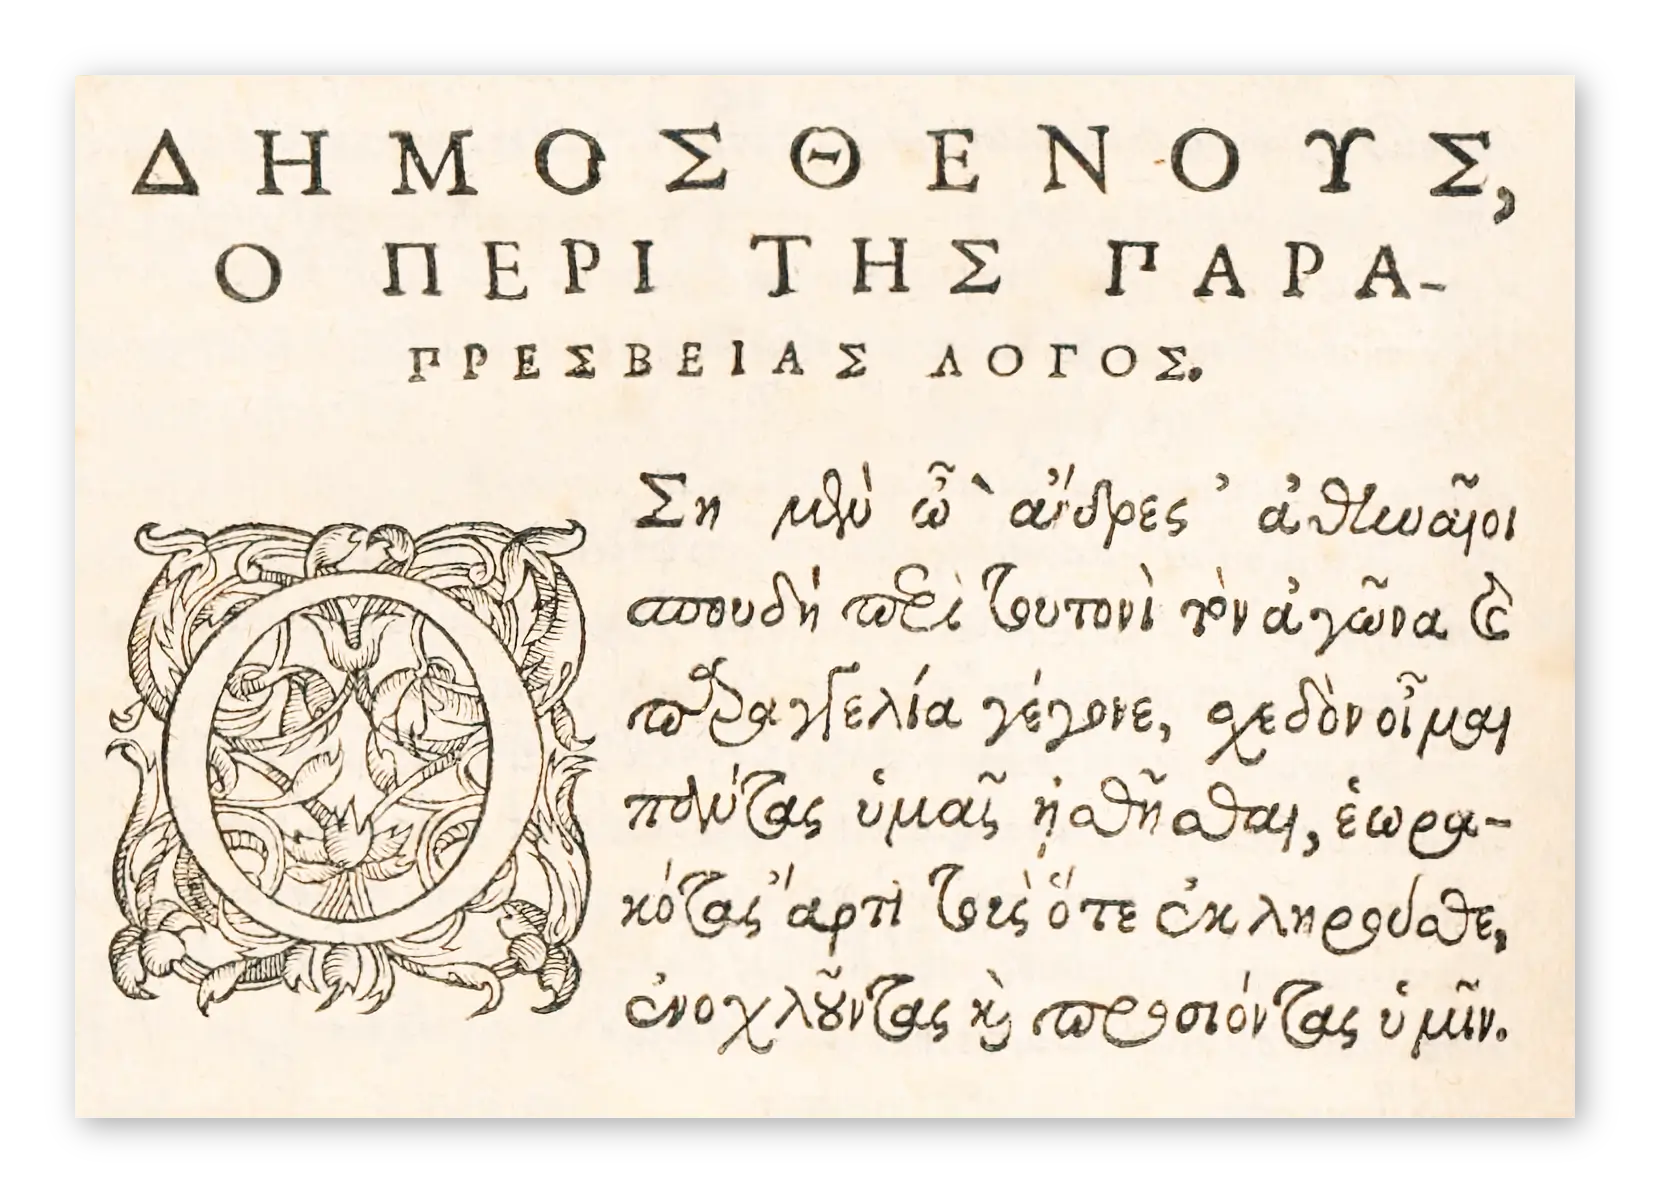 ΔΗΜΟΣΘΕΝΟΥΣ,
Ο ΠΕΡΙ ΤΗΣ ΠΑΡΑ-
ΠΡΕΣΒΕΙΑΣ ΛΟΓΟΣ.
ΟΣη μὲν ὦ ἄνδρες ἀθηναῖοι
σπουδὴ περὶ τουτονὶ τὸν ἀγῶνα καὶ
παραγγελία γέγονε, σχεδὸν οἶμαι
πάντας ὑμᾶς ᾐσθῆσθαι, ἑωρα-
κότας ἄρτι τοὺς ὅτε ἐκληροῦσθε,
ἐνοχλοῦντας καὶ προσιόντας ὑμῖν.